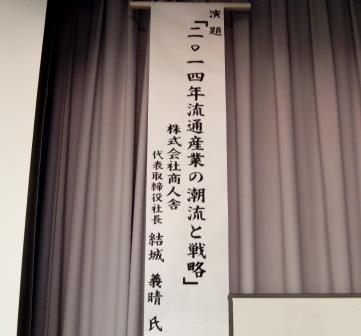 演題
「二〇一四年流通産業の潮流と戦略」
株式会社商人舎
代表取締役社長 結城 義晴 氏